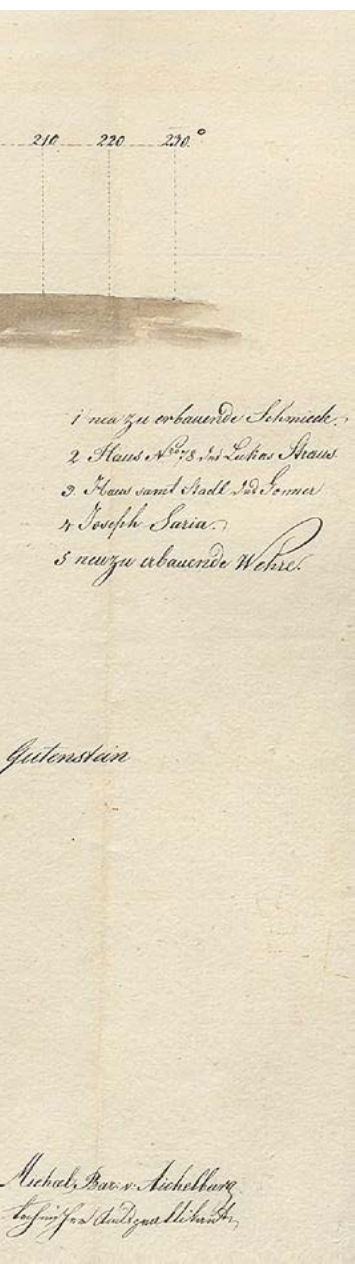 210 220 230°
1 neu zu erbauende Schmiede.
2 Haus Nro 78 des Lukas Straus
3 Haus samt Stadl des Gonner
4 Joseph Saria.
5 neu zu erbauende Wehre.
Gutenstein
Michael Bar. v. Aichelburg
technischer Amtspraktikant